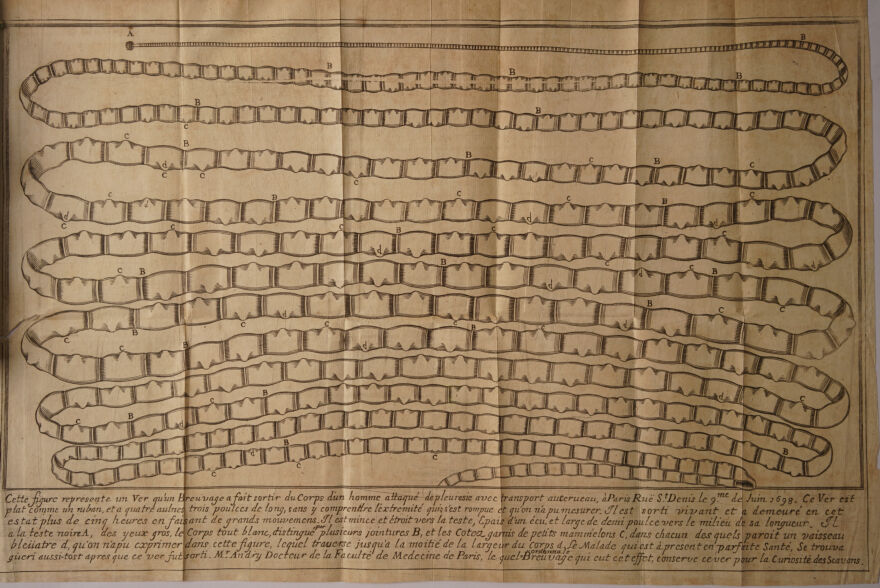 A
B
B B B
B B
c
c B B c B c
d c c c c
c B c c B c
d d d
c c c B c c
d d
c B B c d c B
d B d
c B c c B c B c
d
c B d c
c d c B d c
B B
d c c c
Cette figure represente un Ver qu'un Breuvage a fait sortir du Corps d'un homme attaqué de pleuresie avec transport au cerueau, à Paris Ruë St. Denis le 9.me de Juin. 1698. Ce Ver est
plat comme un ruban, et a quatre aulnes trois poulces de long, sans y comprendre l'extremité qui s'est rompue et qu'on n'a pu mesurer. Il est sorti vivant et a demeuré en cet
estat plus de cinq heures en faisant de grands mouvemens. Il est mince et étroit vers la teste, Epais d'un écu, et large de demi poulce vers le milieu de sa longueur. Il
a la teste noire A, des yeux gros, le Corps tout blanc, distingué par plusieurs jointures B, et les Cotez garnis de petits mammelons C, dans chacun des quels paroit un vaisseau
bleüatre d, qu'on n'a pu exprimer dans cette figure, lequel traverse jusqu'a la moitié de la largeur du corps d, Le Malade qui est à present en parfaite Santé, Se trouva
gueri aussi-tost apres que ce ver fut sorti. Mr. Andry Docteur de la Faculté de Medecine de Paris, lequel ordonna le Breuvage qui eut cet effet, conserve ce ver pour la Curiosité des Scavans.